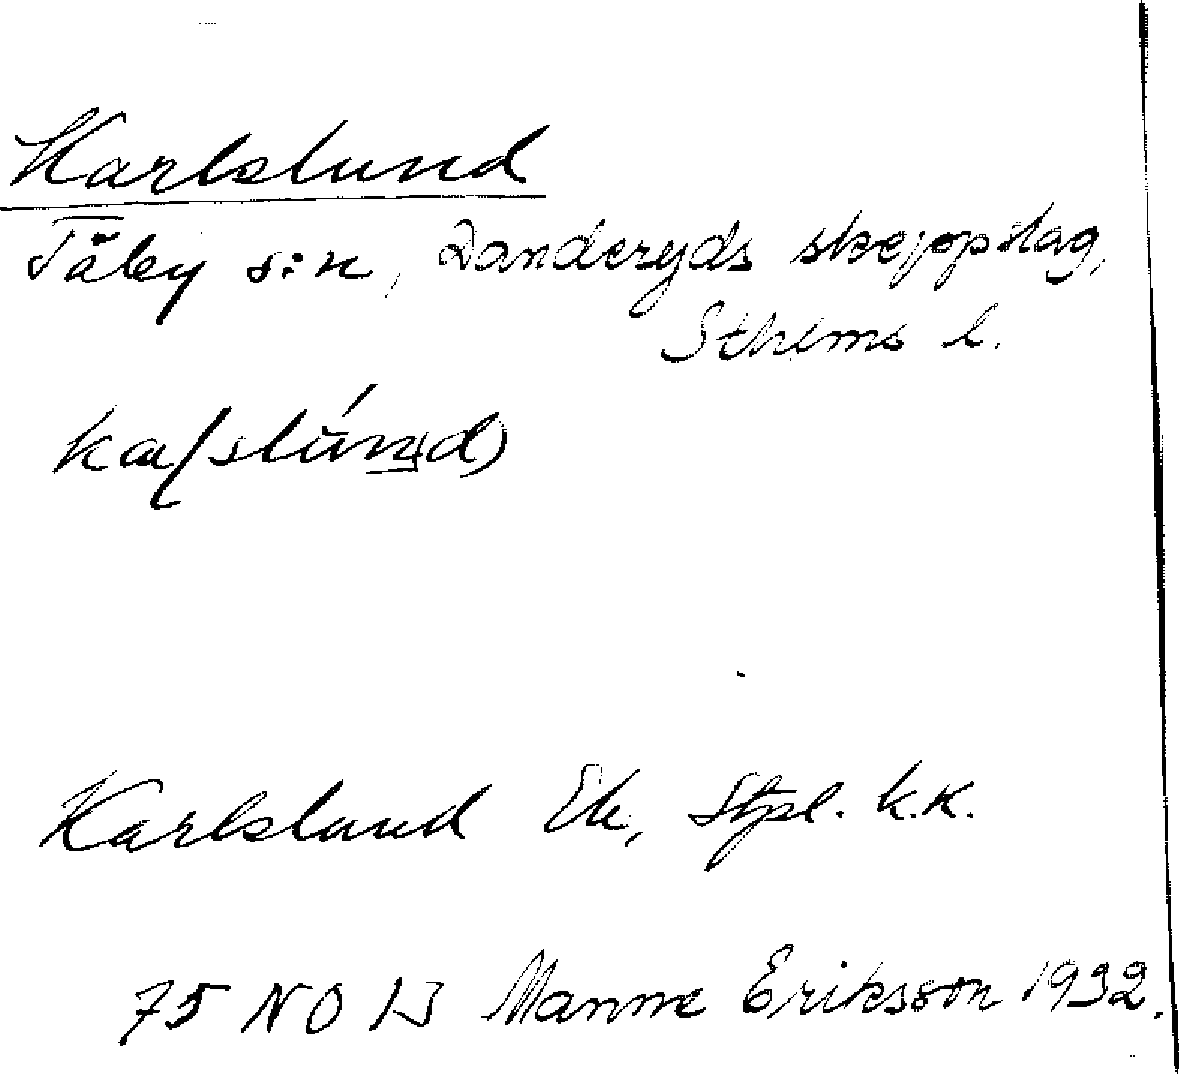 Karlslund
Täby s:n, Danderyds skeppslag,
Sthlms l.
Karlslund Ek, Stpl. k.k.
75 NO Manne Eriksson 1932.